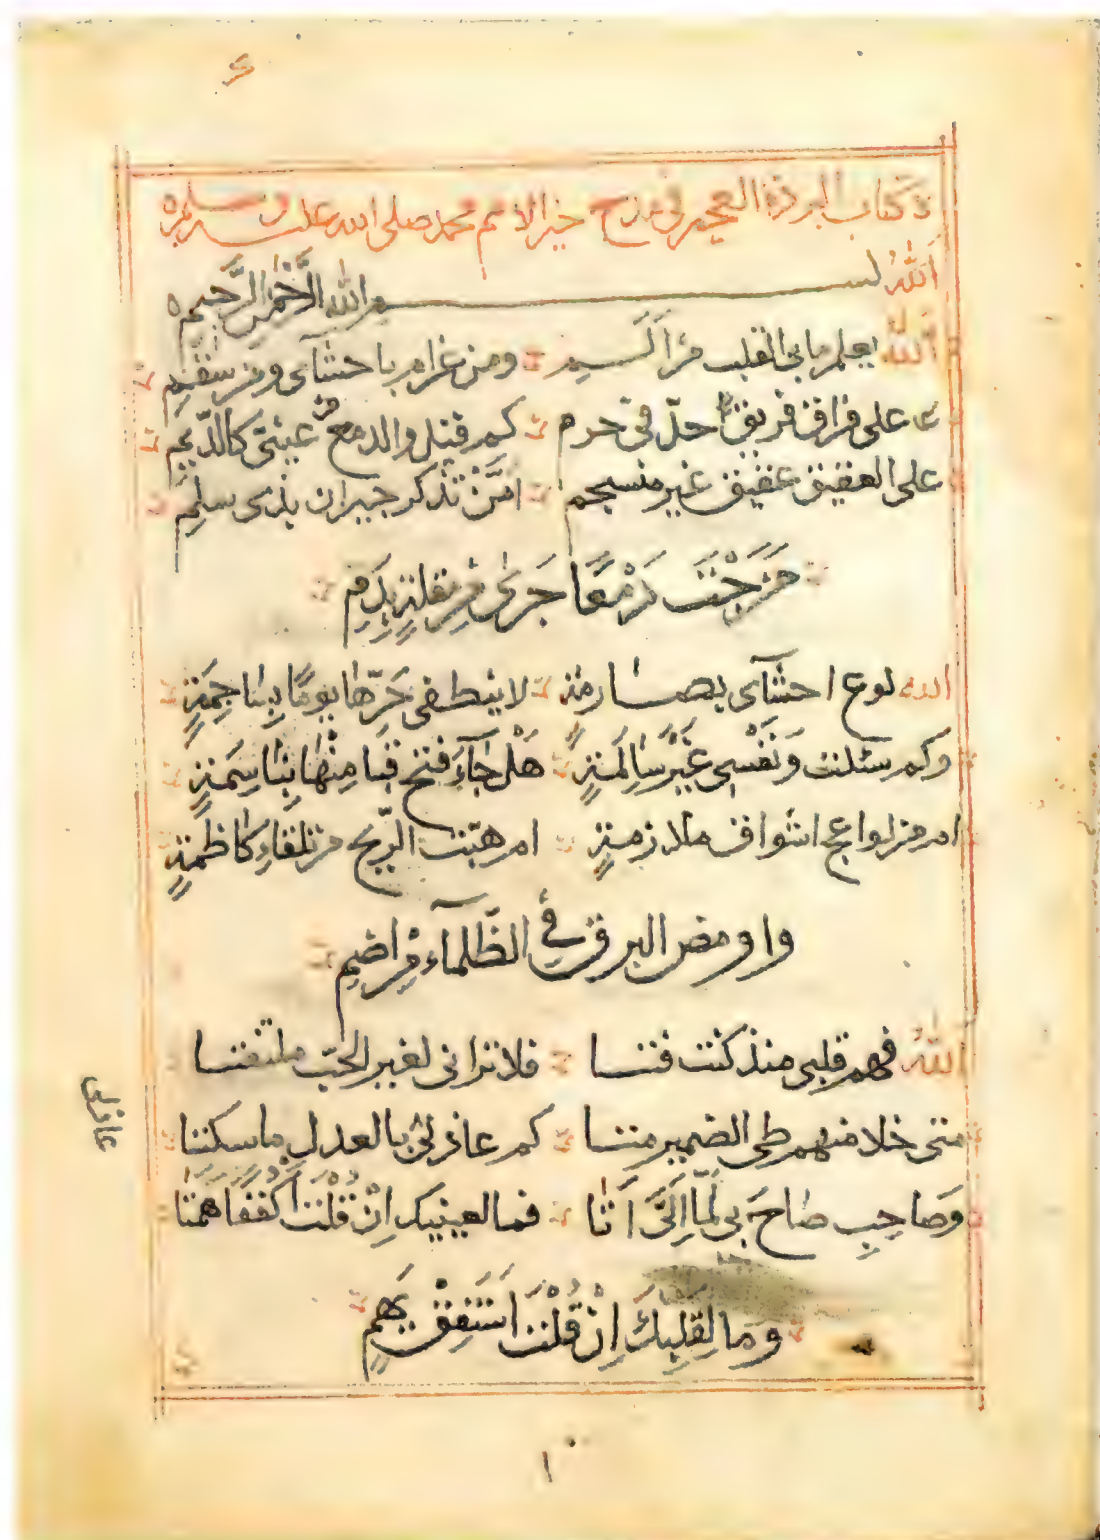 ع
ذكتاب البردة العجم في مدح خير الامم محمد صلى الله عليه وسلم
اَللّٰهُ بسم الله الرَّحْمٰن الرَّحيم
اللّٰه يعلم ما بى القلب من اَلَسِيم ومن غرام باحشآى ومن سقمِ
على فراق فريق حلّ فى حرم كم قتل والدمع من عينىّ كالدّيم
على العقيق عقيق غير منسجم اَمِنْ تَذَكر جيران بذى سلمِ
مَزَجْتَ دَمْعًا جَرَىٰ مِنْ مقلةٍ بِدَمِ
الله لوع احشآى بصارمة لا ينطفى حَرّها يومًا بِنا جِمَةٍ
وكم سئلت وَنَفْسِى غَيْرَ سَالِمَةٍ هَلْ جَآءَ فتح قبا مِنْهَا بِنَاسِمَةٍ
ام من لواعج اشواق ملازمةٍ ام هبّت الرّيح من تلقاءِ كاظمةٍ
واومض البرق فِي الظّلمآء مِن اضمِ
اَللّٰهُ فهم قلبى منذ كنت فتا فلا ترانى لغير الحبّ ملتفتا
متى خلا منهم طى الضمير متا كم عاذلى بالعدل ما سكتا
وَصَاحِبِ صَاحَ بى لَمّا اِلَىَّ اَتٰا فما لعينيك اِنْ قُلْتَ اكْفُفَا هَمَتَا
وَمَا لِقَلْبِكَ اِنْ قُلْتَ اسْتَفِقْ يَهِمِ
عاذلى
١